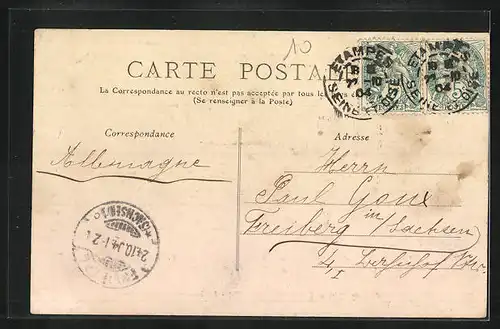 10
CARTE POSTALE
La Correspondance au recto n'est pas acceptée par tous le
(Se renseigner à la Poste)
ETAMPES
10
04
SEINE-ET-OISE
ETAMPES
10
04
SEINE-ET-OISE
Correspondance
Adresse
Allemagne
Herrn
Paul
in
Freiberg Sachsen
4
I
24.10.04.1-2
(SACHSEN)